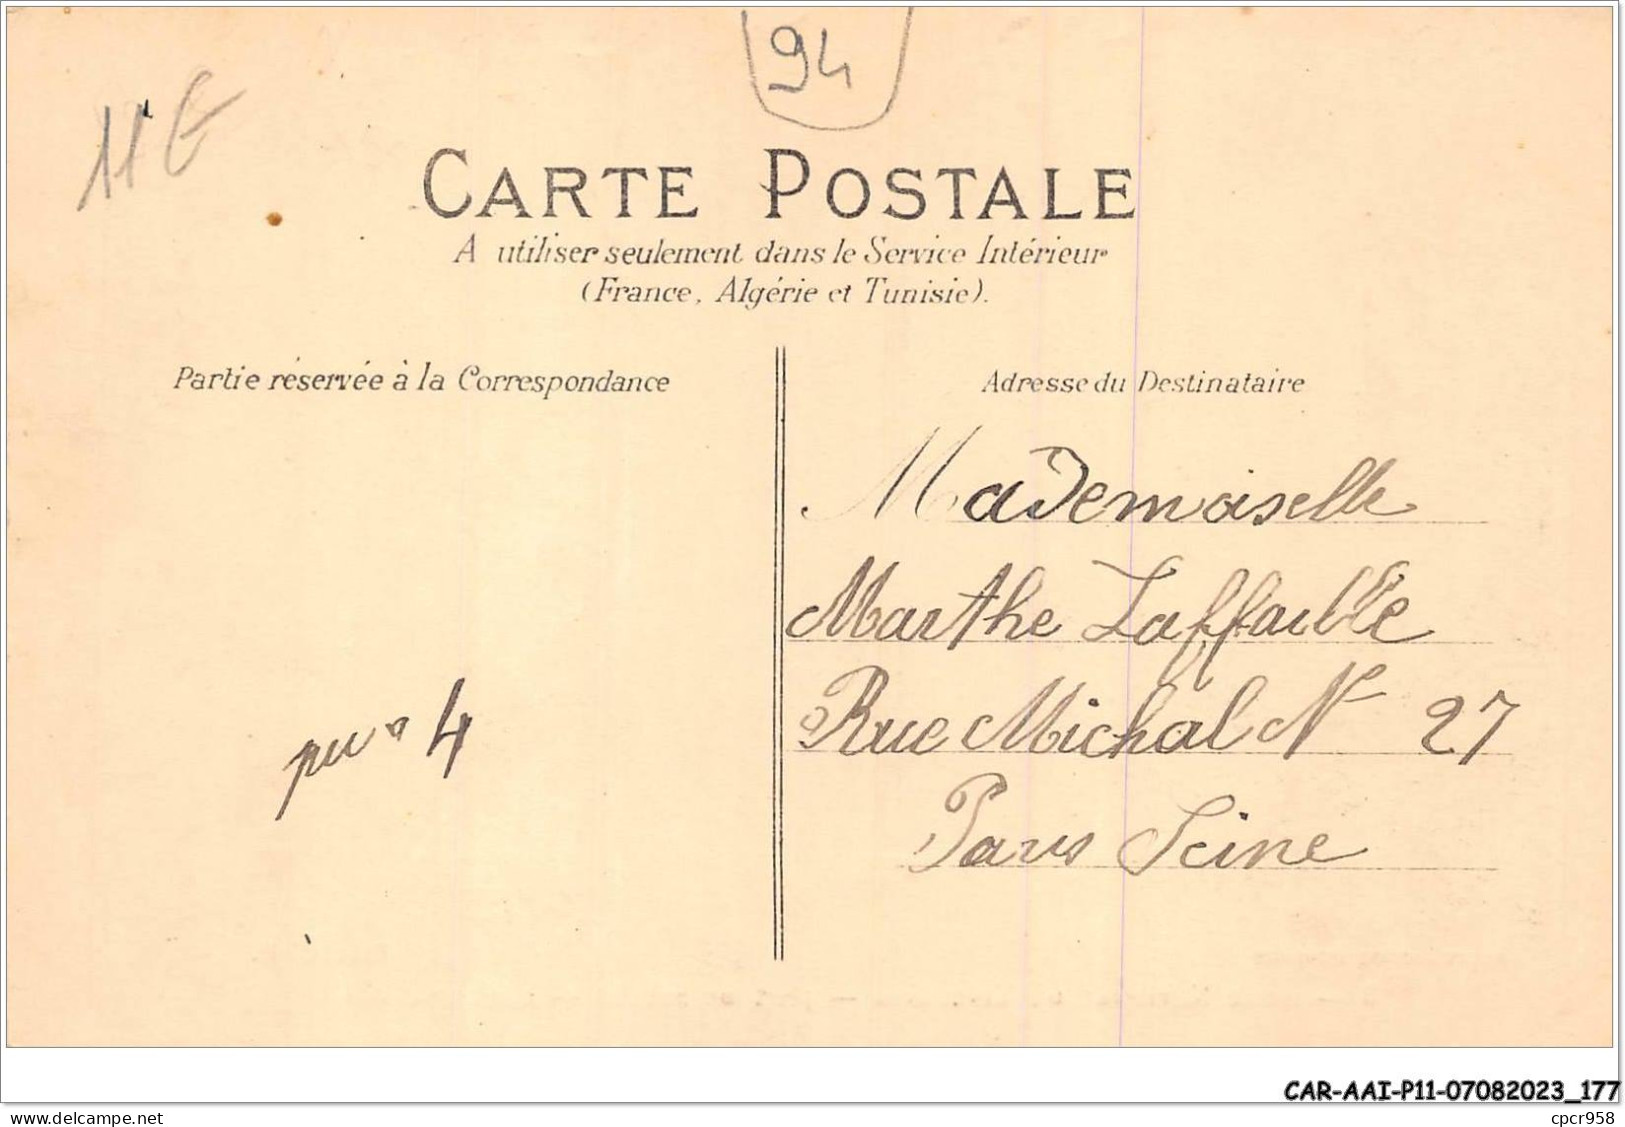 94
11 €
CARTE POSTALE
A utiliser seulement dans le Service Intérieur
(France, Algérie et Tunisie).
Partie réservée à la Correspondance
Adresse du Destinataire
Mademoiselle
Marthe Laffaible
Rue Michal N 27
Paris Seine
4
CAR-AAI-P11-07082023_177
www.delcampe.net
cpcr958